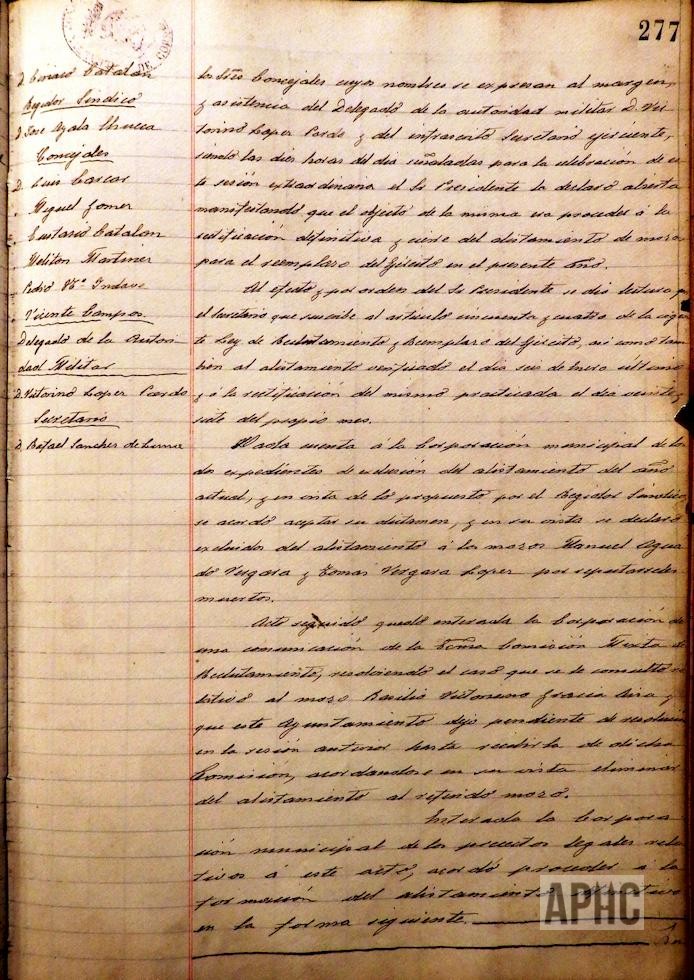 277
D. Ciriaco Catalan
Regidor Sindico
D. Jose Ayala
Concejales
D. Luis Lascar
" Miguel Gomez
" Eustasio Catalan
" Meliton Martinez
" Pedro
" Vicente Campos
Delegado de la Autori-
dad Militar
D. Vitorino Lopez Pardo
Secretario
D. Rafael Sanchez de Lerma
los Sres Concejales cuyos nombres se expresan al margen,
y asistencia del Delegado de la autoridad militar D. Vi-
torino Lopez Pardo y del infrascrito Secretario ejerciente,
siendo las diez horas del dia señaladas para la celebracion de es
te sesión extraordinaria el Sr Presidente la declaró abierta
manifestando que el objeto de la misma era proceder á la
rectificación definitiva y cierre del alistamiento de mozos
para el reemplazo del Ejército en el presente año.
Al efecto y por orden del Sr Presidente se dió lectura por
el Secretario que suscribe al articulo cincuenta y cuatro de la vigen
te Ley de Reclutamiento y Reemplazo del Ejército, asi como tam
bién al alistamiento verificado el dia seis de Enero último
y á la rectificación del mismo practicada el dia veinte y
siete del propio mes.
Dada cuenta á la Corporación municipal de los
dos expedientes de exclusión del alistamiento del año
actual, y en vista de lo propuesto por el Regidor Sindico,
se acordó aceptar su dictamen, y en su vista se declaró
excluidos del alistamiento á los mozos Manuel Agua
do Vergara y Tomas Vergara Lopez por reputarseles
muertos.
Acto seguido quedó enterada la Corporación de
una comunicación de la Comisión Mixta de
Reclutamiento, resolviendo el caso que se le consultó re
lativo al mozo Basilio Victoriano Gracia y
que este Ayuntamiento dejo pendiente de resolución
en la sesión anterior hasta recibirla de dicha
Comisión, acordandose en su vista eliminar
del alistamiento al referido mozo.
Enterada la Corpora
ción municipal de los preceptos legales rela
tivos á este acto, acordó proceder á la
formación del alistamiento definitivo
en la forma siguiente.
APHC